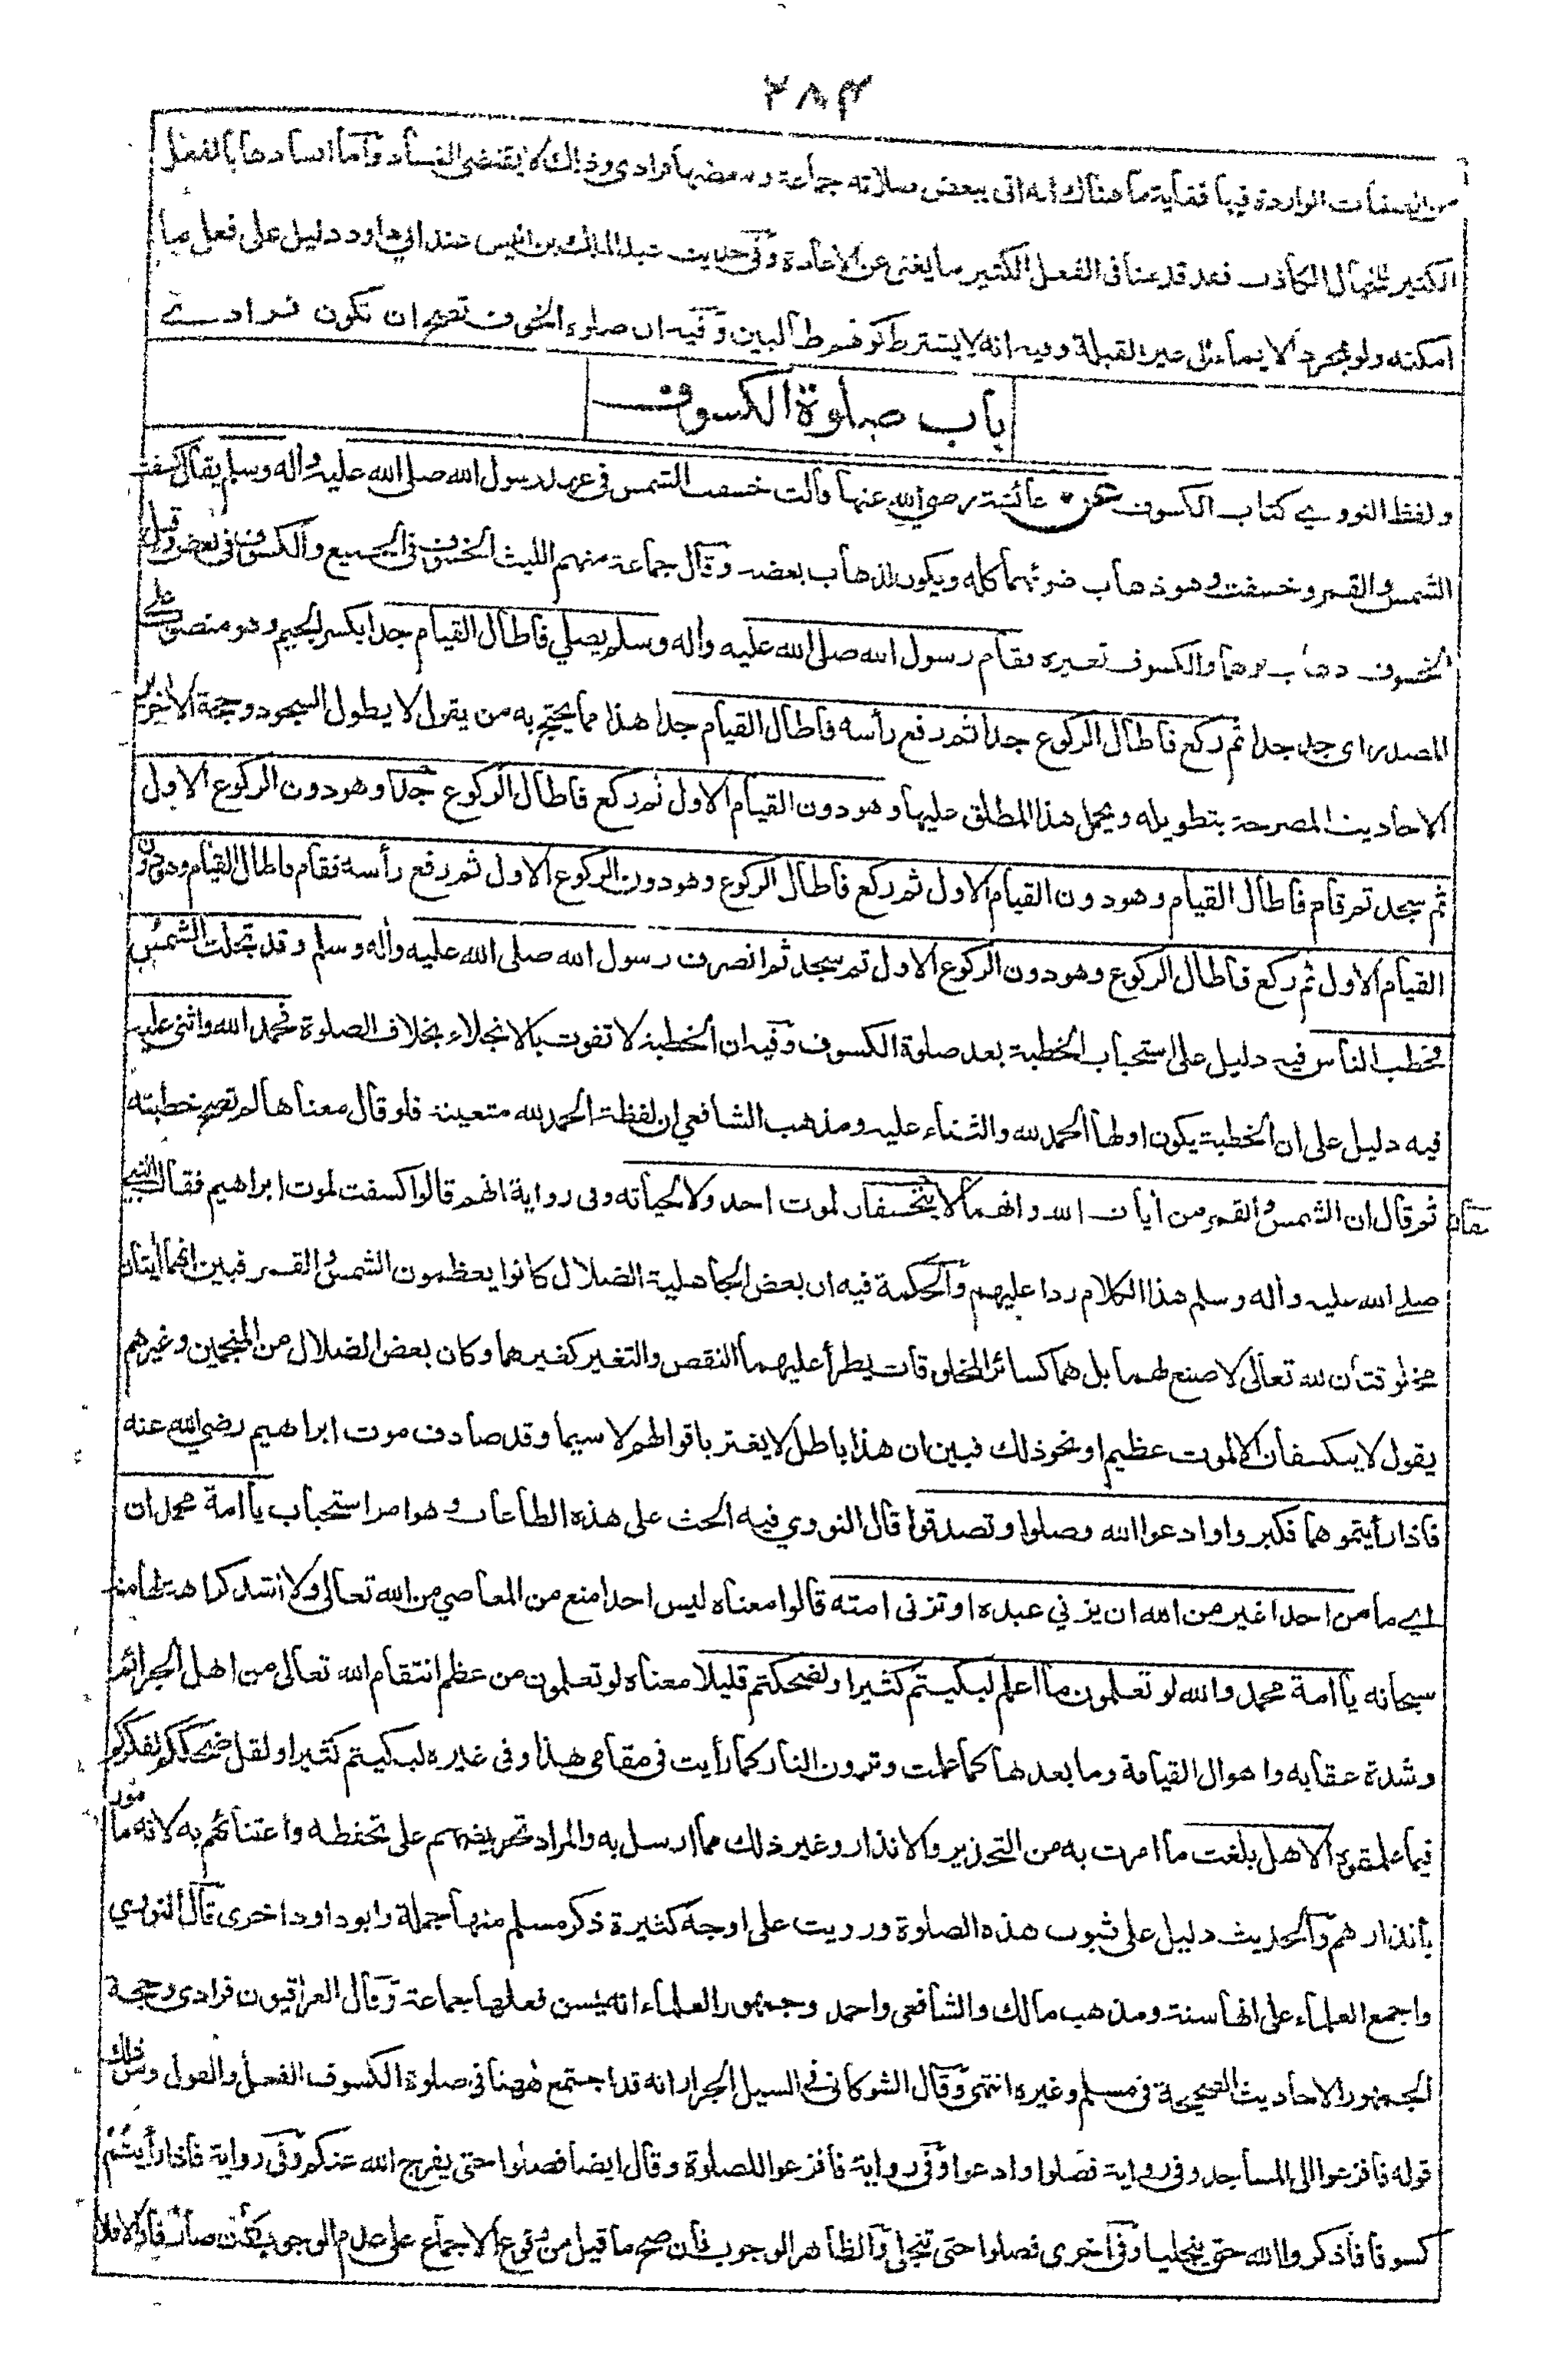 ٢٨٣
من الصفات الواردة فيها فغاية ما هناك انه اتى ببعض صلاته جماعة وبعضها فرادى وذلك لا يقتضى الفساد واما افسادها بالفعل
الكثير للخيال الكاذب فقد قدمنا فى الفعل الكثير ما يغنى عن الاعادة وفى حديث عبد الله بن انيس عند ابي داود دليل على فعل ما
امكنه ولو بمجرد الايماء الى غير القبلة وفيه انه لا يشترط كونهم طالبين وفيه ان صلوة الخوف تصح ان تكون فرادے
باب صلوة الكسوف
ولفظ النووي كتاب الكسوف عن عائشة رضي الله عنها قالت خسفت الشمس فى عهد رسول الله صلى الله عليه وأله وسلم يقال كسفت
الشمس والقمر وخسفت وهو ذهاب ضوئهما كله ويكون لذهاب بعضه وقال جماعة منهم الليث الخسوف فى الجميع والكسوف فى بعض وقيل
الخسوف ذهاب لونهما والكسوف تغيره فقام رسول الله صلى الله عليه وأله وسلم يصلي فاطال القيام جدا بكسر الجيم وهو منصوب على
المصدر اى جد جدا ثم ركع فاطال الركوع جدا ثم رفع رأسه فاطال القيام جدا هذا مما يحتج به من يقول لا يطول السجود وحجة الأخرين
الاحاديث المصرحة بتطويله ويحمل هذا المطلق عليها وهو دون القيام الاول ثم ركع فاطال الركوع جدا وهو دون الركوع الاول
ثم سجد ثم قام فاطال القيام وهو دون القيام الاول ثم ركع فاطال الركوع وهو دون الركوع الاول ثم رفع رأسه فقام فاطال القيام وهو دون
القيام الاول ثم ركع فاطال الركوع وهو دون الركوع الاول ثم سجد ثم انصرف رسول الله صلى الله عليه وأله وسلم وقد تجلت الشمس
فخطب الناس فيه دليل على استحباب الخطبة بعد صلوة الكسوف وفيه ان الخطبة لا تفوت بالانجلاء بخلاف الصلوة فحمد الله واثنى عليه
فيه دليل على ان الخطبة يكون اولها الحمد لله والثناء عليه ومذهب الشافعي ان لفظة الحمد لله متعينة فلو قال معناها لم تصح خطبته
ثم قال ان الشمس والقمر من أيات الله وانهما لا ينخسفان لموت احد ولا لحياته وفى رواية انهم قالوا كسفت لموت ابراهيم فقال النبي
صلے الله عليه وأله وسلم هذا الكلام ردا عليهم والحكمة فيه ان بعض الجاهلية الضلال كانوا يعظمون الشمس والقمر فبين انهما أيتان
مخلوقتان لله تعالى لا صنع لهما بل هما كسائر المخلوقات يطرأ عليهما النقص والتغير كغيرهما وكان بعض الضلال من المنجمين وغيرهم
يقول لا يكسفان الا لموت عظيم او نحو ذلك فبين ان هذا باطل لا يغتر باقوالهم لا سيما وقد صادف موت ابراهيم رضي الله عنه
فاذا رأيتموهما فكبروا وادعوا الله وصلوا وتصدقوا قال النووي فيه الحث على هذه الطاعات وهو امر استحباب يا امة محمد ان
اے ما من احد اغير من الله ان يزني عبده او تزنى امته قالوا معناه ليس احد امنع من المعاصي من الله تعالى ولا اشد كراهة لها منه
سبحانه يا امة محمد والله لو تعلمون ما اعلم لبكيتم كثيرا ولضحكتم قليلا معناه لو تعلمون من عظم انتقام الله تعالى من اهل الجرائم
وشدة عقابه واهوال القيامة وما بعدها كما علمت وترون النار كما رأيت فى مقامى هذا وفى غيره لبكيتم كثيرا ولقل ضحككم لفكركم
فيما علمتموه الا هل بلغت ما امرت به من التحذير والانذار وغير ذلك مما ارسل به والمراد تحريضهم على تحفظه واعتنائهم به لانه مأمور
بانذارهم والحديث دليل على ثبوت هذه الصلوة ورويت على اوجه كثيرة ذكر مسلم منها جملة وابو داود اخرى قال النووي
واجمع العلماء على انها سنة ومذهب مالك والشافعى واحمد وجمهور العلماء انه يسن فعلها جماعة وقال العراقيون فرادى وحجة
الجمهور الاحاديث الصحيحة فى مسلم وغيره انتهى وقال الشوكانى فى السيل الجرار انه قد اجتمع ههنا فى صلوة الكسوف الفعل والقول ومن ذلك
قوله فافزعوا الى المساجد وفى رواية فصلوا وادعوا وفى رواية فافزعوا للصلوة وقال ايضا فصلوا حتى يفرج الله عنكم وفى رواية فاذا رأيتم
كسوفا فاذكروا الله حتى ينجليا وفى اخرى فصلوا حتى تنجلى والظاهر الوجوب فان صح ما قيل من وقوع الاجماع على عدم الوجوب كان صارفا والا فلا